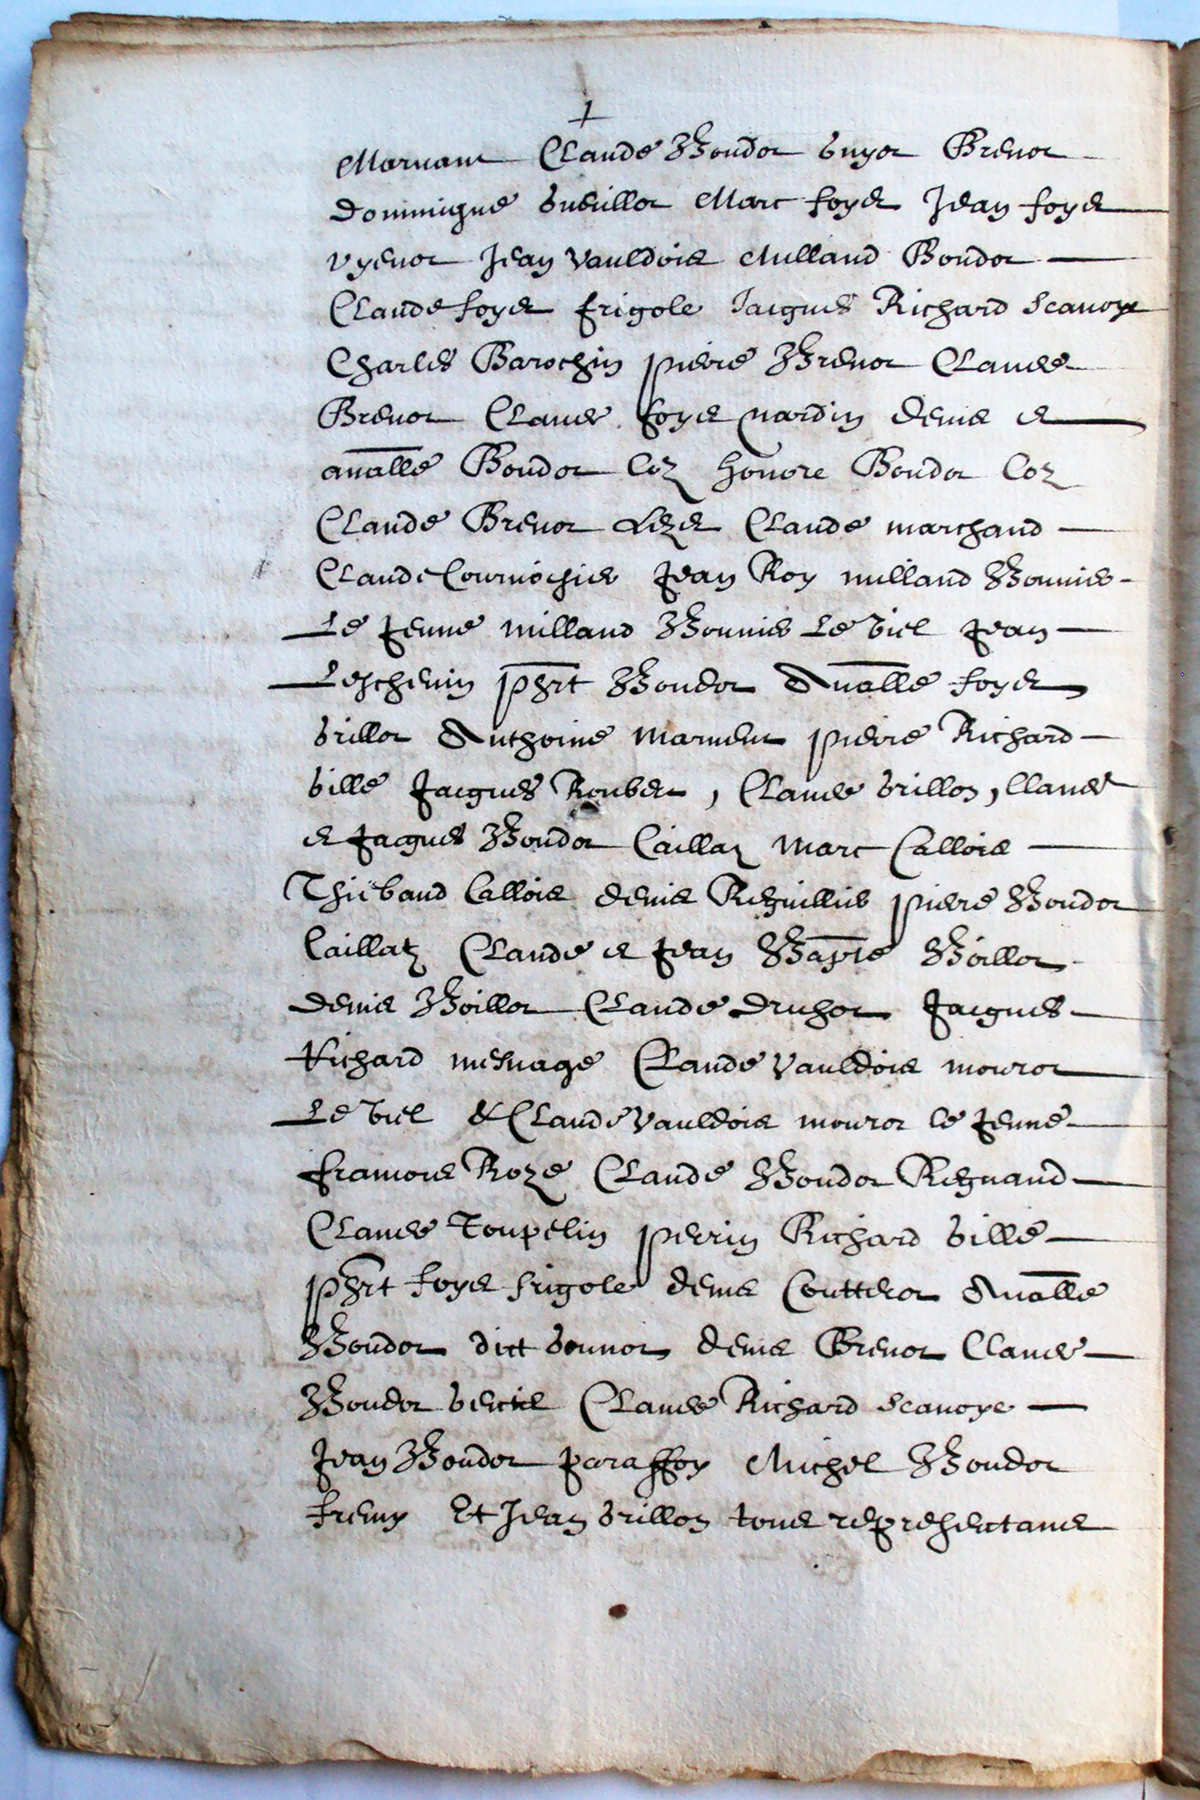 Marnant Claude Boudot Guyot Brenot
Dominique Vueillot Marc Foyet Jean Foyet
Vyenot Jean Vauldois Milland Boudot
Claude Foyet Frigole Jacques Richard Scavoye
Charles Barochin Pierre Brenot Claude
Brenot Claude Foyet Nardin Denis et
Anatlle Boudot Coz Honore Boudot Coz
Claude Brenot Claude Marchand
Claude Jean Roy Milland Bonnies
Le Jeune Milland Bonnies Le Viel Jean
Leschenin Phrt Boudot Anatlle Foyet
Vrillot Anthoine Marnent Pierre Richard
Ville Jacques Roubert, Claude Vrillon, Claude
et Jacques Boudot Caillaz Marc Callois
Thiebaud Callois Denis Reguillis Pierre Boudot
Caillatz Claude et Jean Bapte Boillot
Denis Boillot Claude Druhot Jacques
Richard mesnage Claude Vauldois Mourot
Le Viel & Claude Vauldois Mourot le Jeune
Francois Roze Claude Boudot Regnaud
Claude Toupelin Perrin Richard Ville
Phrt Foyet Frigole Denis Couttetot Anatlle
Boudot dict Denis Brenot Claude
Boudot Claude Richard Scavoye
Jean Boudot Michel Boudot
Fremy Et Jean Vrillon tous representans